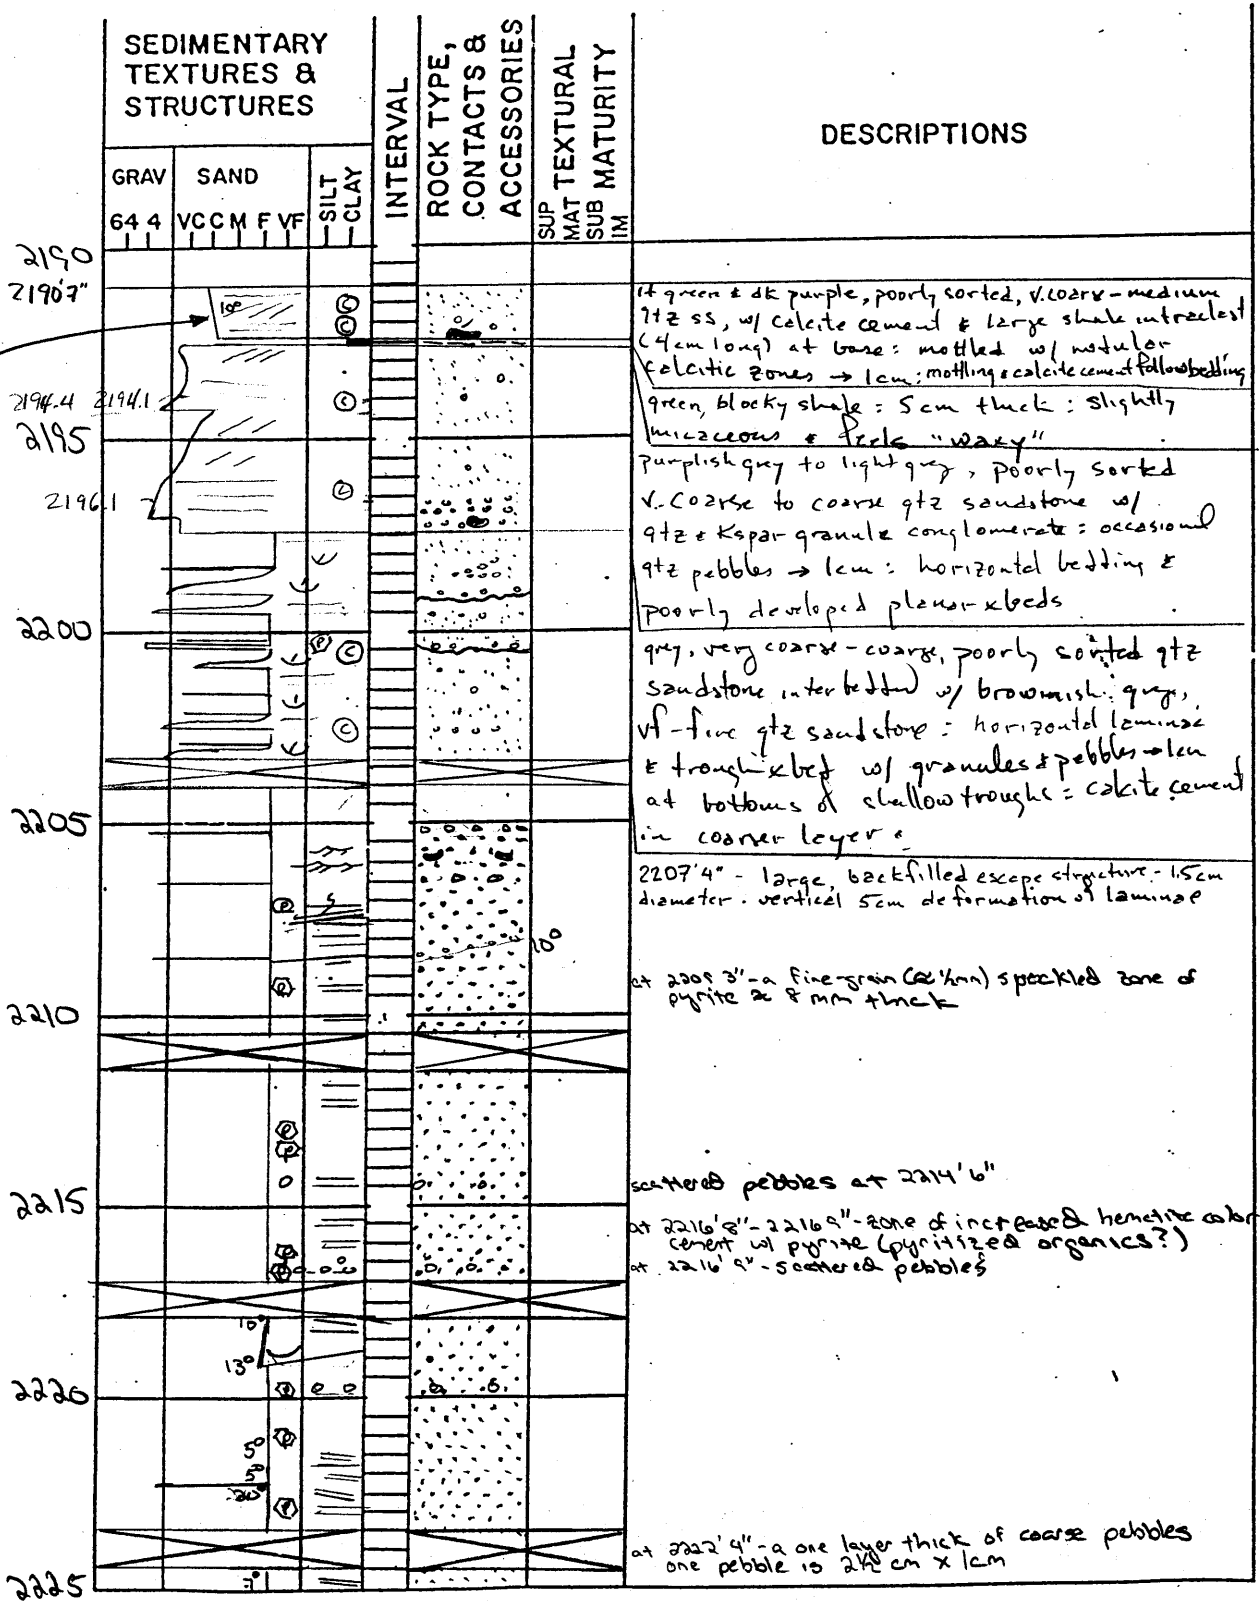 SEDIMENTARY
TEXTURES &
STRUCTURES
INTERVAL
ROCK TYPE,
CONTACTS &
ACCESSORIES
TEXTURAL
MATURITY
SUP
MAT
SUB
IM
DESCRIPTIONS
GRAV SAND SILT CLAY
64 4 VC C M F VF
2190
2190'7"
10°
C
C
lt green & dk purple, poorly sorted, v.coarse-medium
qtz ss, w/ calcite cement & large shale intraclast
(4cm long) at base: mottled w/ nodular
calcitic zones → 1cm: mottling & calcite cement follow bedding
2194.4 2194.1
C
green, blocky shale: 5cm thick: slightly
micaceous & feels "waxy"
2195
purplish grey to light grey, poorly sorted
v. coarse to coarse qtz sandstone w/
qtz & Kspar granule conglomerate: occasional
qtz pebbles → 1cm: horizontal bedding &
poorly developed planar xbeds
2196.1
C
2200
P
C
C
grey, very coarse-coarse, poorly sorted qtz
sandstone interbedded w/ brownish grey,
vf-fine qtz sandstone: horizontal laminae
& trough xbed w/ granules & pebbles → 1cm
at bottoms of shallow troughs: calcite cement
in coarser layer
2205
2207'4" - large, backfilled escape structure - 1.5cm
diameter. vertical 5cm deformation of laminae
P
10°
P
at 2209 3" - a fine-grain (≈ ½mm) speckled zone of
pyrite ≈ 8 mm thick
2210
P
P
scattered pebbles at 2214'6"
2215
at 2216'8"-2216 9"-zone of increased hematite color
cement w/ pyrite (pyritized organics?)
at 2216'9"-scattered pebbles
P
P
10°
13°
P
2220
5°
P
5°
20°
P
at 2222'4"-a one layer thick of coarse pebbles
one pebble is 2½ cm x 1cm
7°
2225